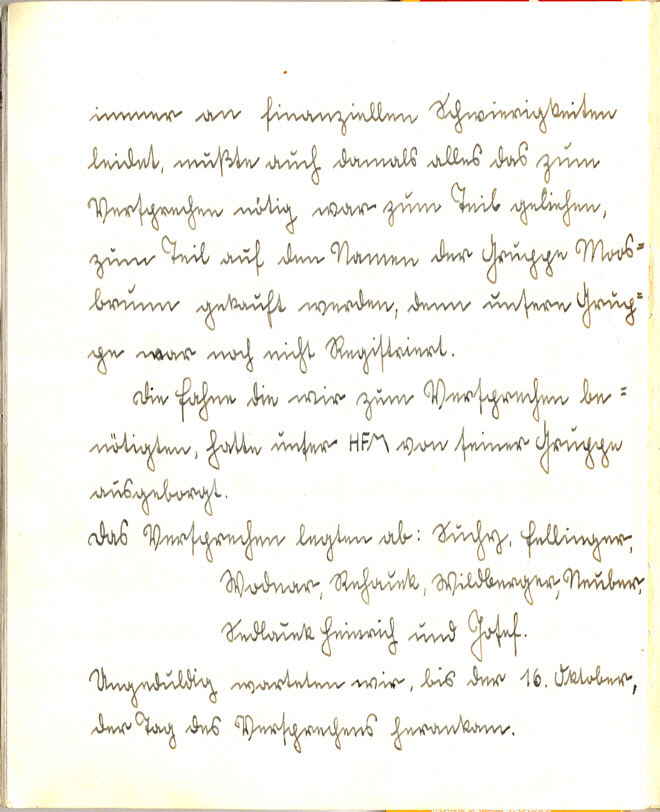 immer an finanziellen Schwierigkeiten
leidet, mußte auch damals alles das zum
Versprechen nötig war zum Teil geliehen,
zum Teil auf den Namen der Gruppe Moos=
brunn gekauft werden, denn unsere Grup=
pe war noch nicht Registriert.
Die Fahne die wir zum Versprechen be=
nötigten, hatte unser HFM von seiner Gruppe
ausgeborgt.
Das Versprechen legten ab: Suchy, Fellinger,
Wodnar, Rehacek, Wildberger, Neuber,
Sedlacek Heinrich und Josef.
Ungeduldig warteten wir, bis der 16. Oktober,
der Tag des Versprechens herankam.